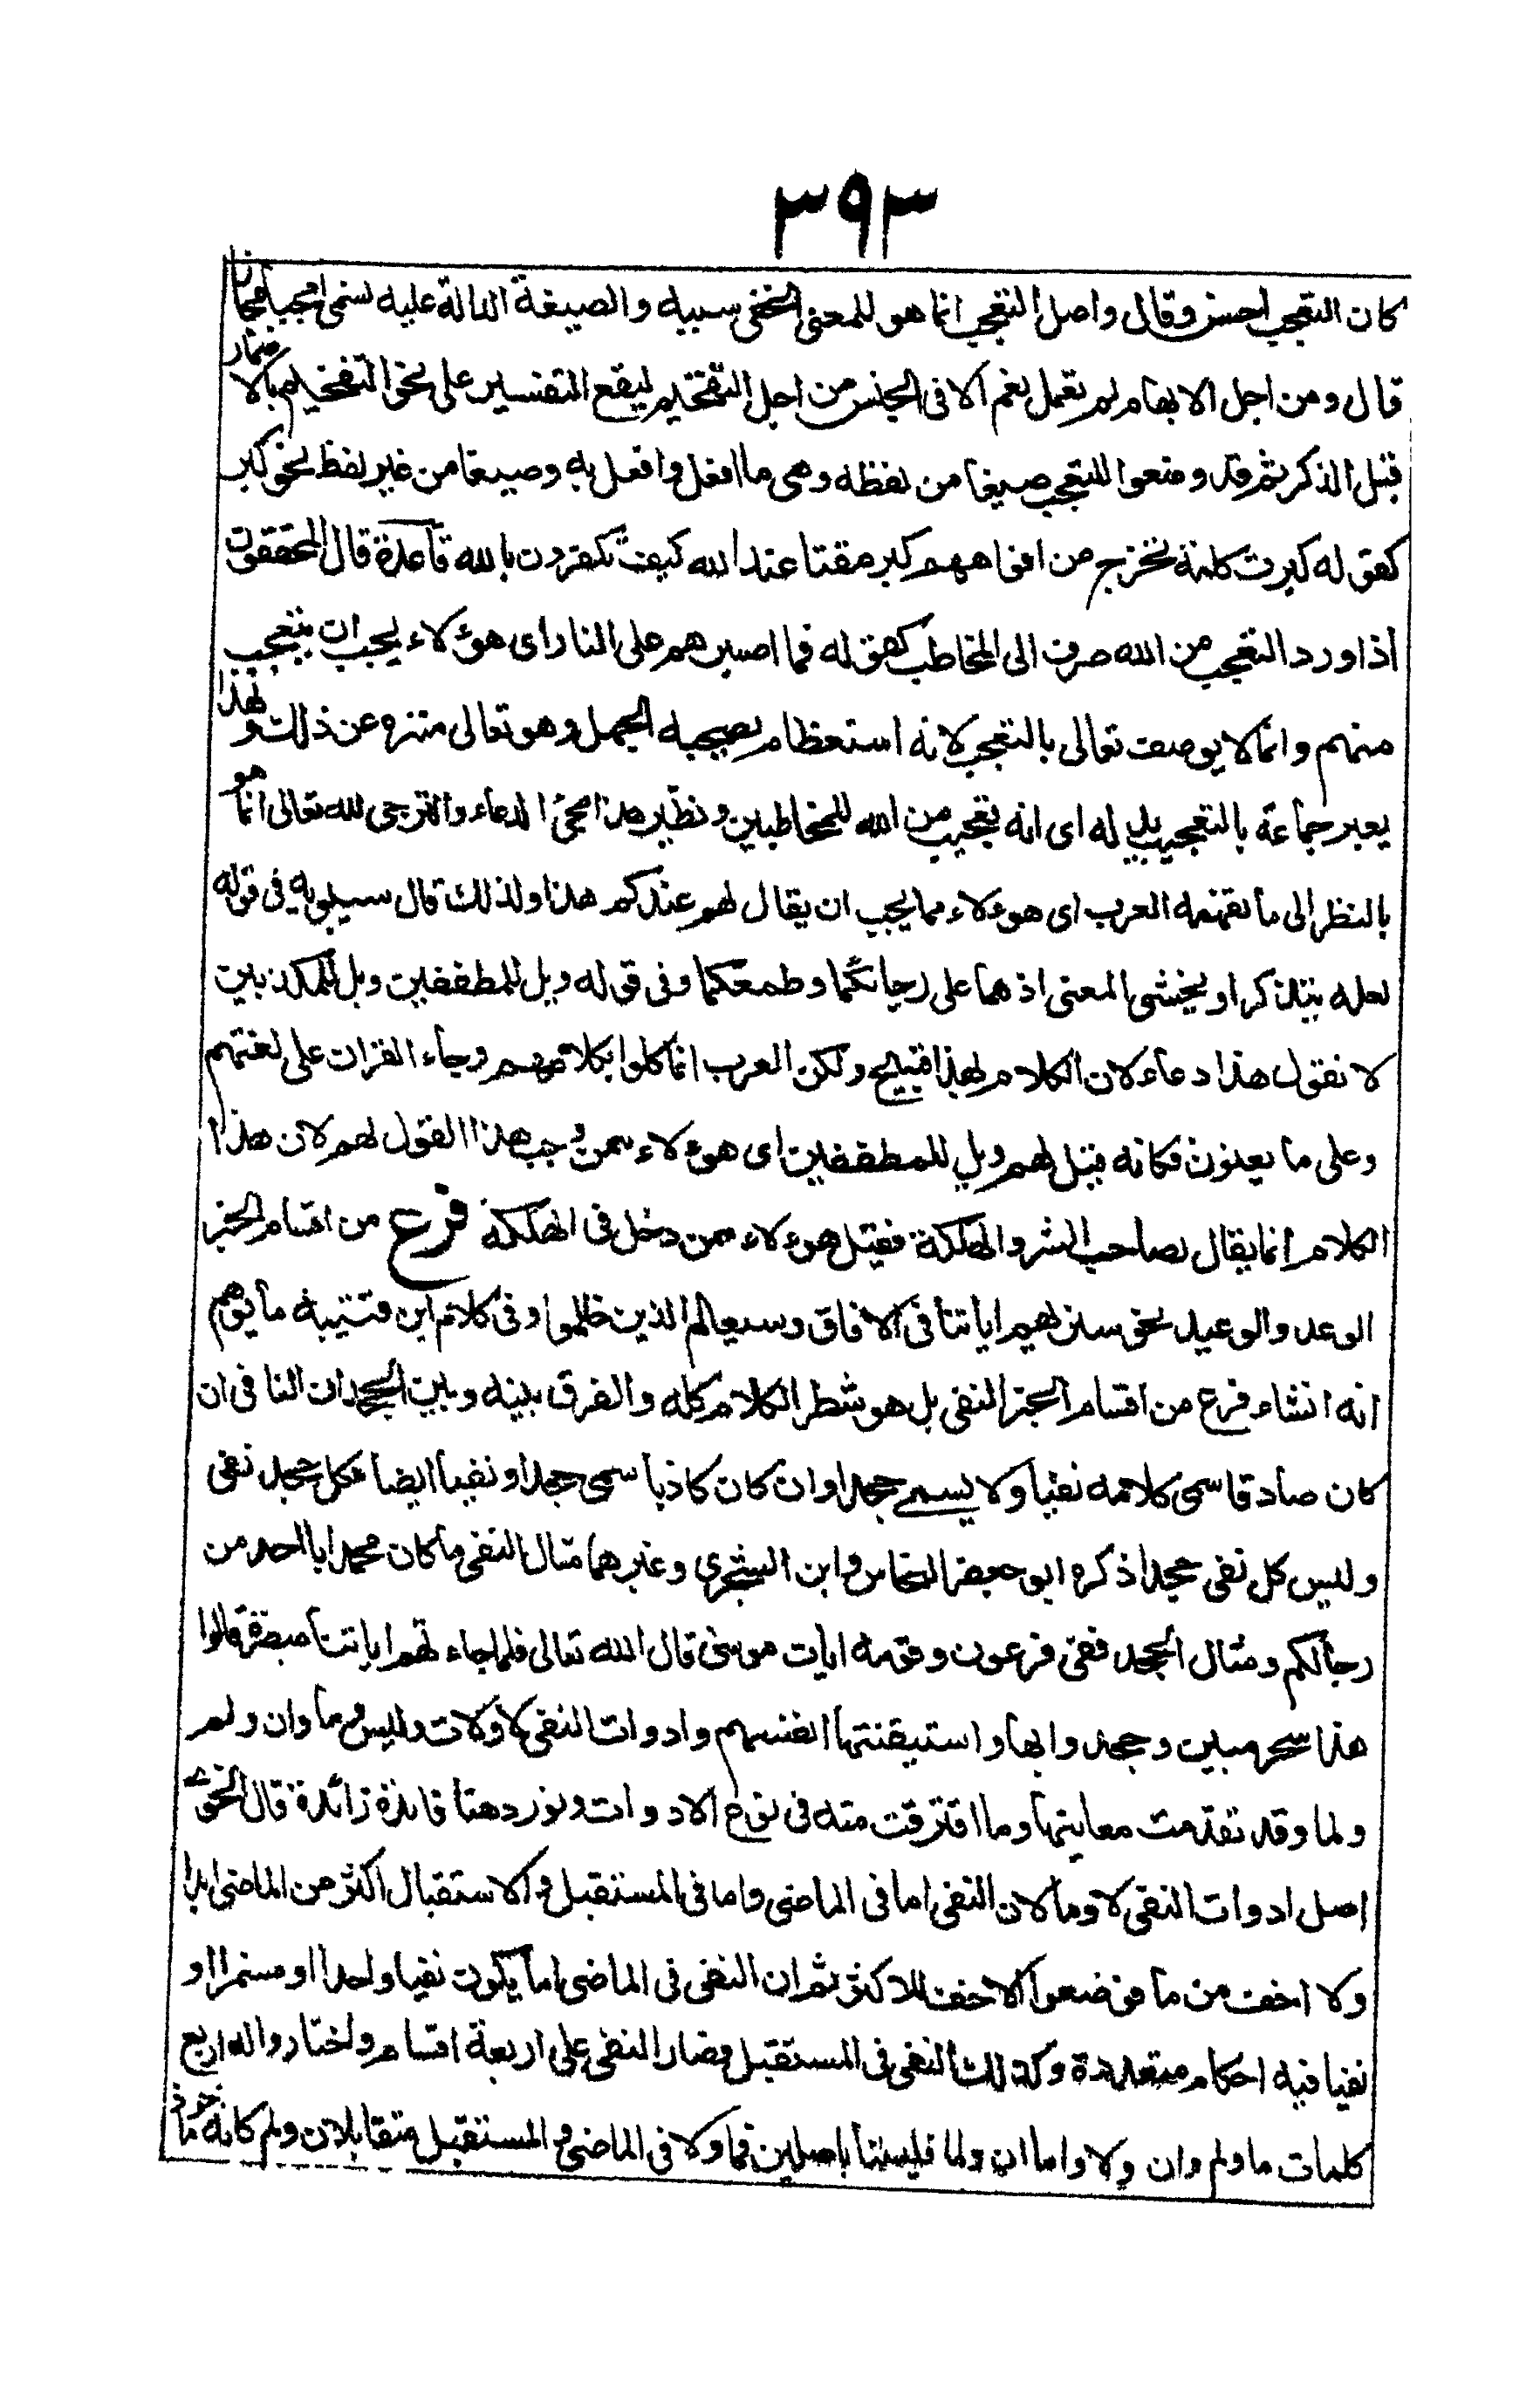 ٣٩٣
كان التعجب احسن وقال واصل التعجب انما هو للمعنى الخفى سببه والصيغة الدالة عليه تسمى تعجبا مجازا
قال ومن اجل الابهام لم يعمل نعم الا فى الجنس من اجل التفخيم ليقع التفسير على نحو التفخيم بالاضمار
قبل الذكر ثم قد وضعوا للتعجب صيغا من لفظه وهى ما افعل وافعل به وصيغا من غير لفظ نحو كبر
كقوله كبرت كلمة تخرج من افواههم كبر مقتا عند الله كيف تكفرون بالله قاعدة قال المحققون
اذا ورد التعجب من الله صرف الى المخاطب كقوله فما اصبرهم على النار اى هؤلاء يجب ان يتعجب
منهم وانما لا يوصف تعالى بالتعجب لانه استعظام يصحبه الجهل وهو تعالى منزه عن ذلك ولهذا
يعبر جماعة بالتعجيب بدله اى انه تعجيب من الله للمخاطبين ونظير هذا مجئ الدعاء والترجى لله تعالى انما هو
بالنظر الى ما تفهمه العرب اى هوءلاء مما يجب ان يقال لهم عندكم هذا ولذلك قال سيبويه فى قوله
لعله يتذكر او يخشى المعنى اذهبا على رجائكما وطمعكما وفى قوله ويل للمطففين ويل للمكذبين
لا نقول هذا دعاء لان الكلام بهذا قبيح ولكن العرب انما تكلموا بكلامهم وجاء القران على لغتهم
وعلى ما يعنون فكانه قيل لهم ويل للمطففين اى هوءلاء ممن وجب هذا القول لهم لان هذا
الكلام انما يقال لصاحب الشر والهلكة فقيل هوءلاء ممن دخل فى الهلكة فرع من اقسام الخبر
الوعد والوعيد نحو سنريهم اياتنا فى الافاق وسيعلم الذين ظلموا وفى كلام ابن قتيبة ما يوهم
انه انشاء فرع من اقسام الخبر النفى بل هو شطر الكلام كله والفرق بينه وبين الجحد ان النافى ان
كان صادقا سمى كلامه نفيا ولا يسمى جحدا وان كان كاذبا سمى جحدا ونفيا ايضا فكل جحد نفى
وليس كل نفى جحدا ذكره ابو جعفر النحاس وابن الشجرى وغيرهما مثال النفى ما كان محمد ابا احد من
رجالكم ومثال الجحد نفى فرعون وقومه ايات موسى قال الله تعالى فلما جاءتهم اياتنا مبصرة قالوا
هذا سحر مبين وجحدوا بها واستيقنتها انفسهم وادوات النفى لا ولات وليس وما وان ولم
ولما وقد تقدمت معانيها وما افترقت منه فى نوع الادوات ونورد هنا فائدة زائدة قال الخوى
اصل ادوات النفى لا وما لان النفى اما فى الماضى واما فى المستقبل والاستقبال اكثر من الماضى ابدا
ولا اخف من ما فوضعوا الاخف للاكثر ثم ان النفى فى الماضى اما يكون نفيا واحدا او مستمرا او
نفيا فيه احكام متعددة وكذلك النفى فى المستقبل فصار النفى على اربعة اقسام واختاروا له اربع
كلمات ما ولم ولن ولا واما ان ولما فليسا باصلين فما ولا فى الماضى والمستقبل متقابلان ولم كانه ماخوذ